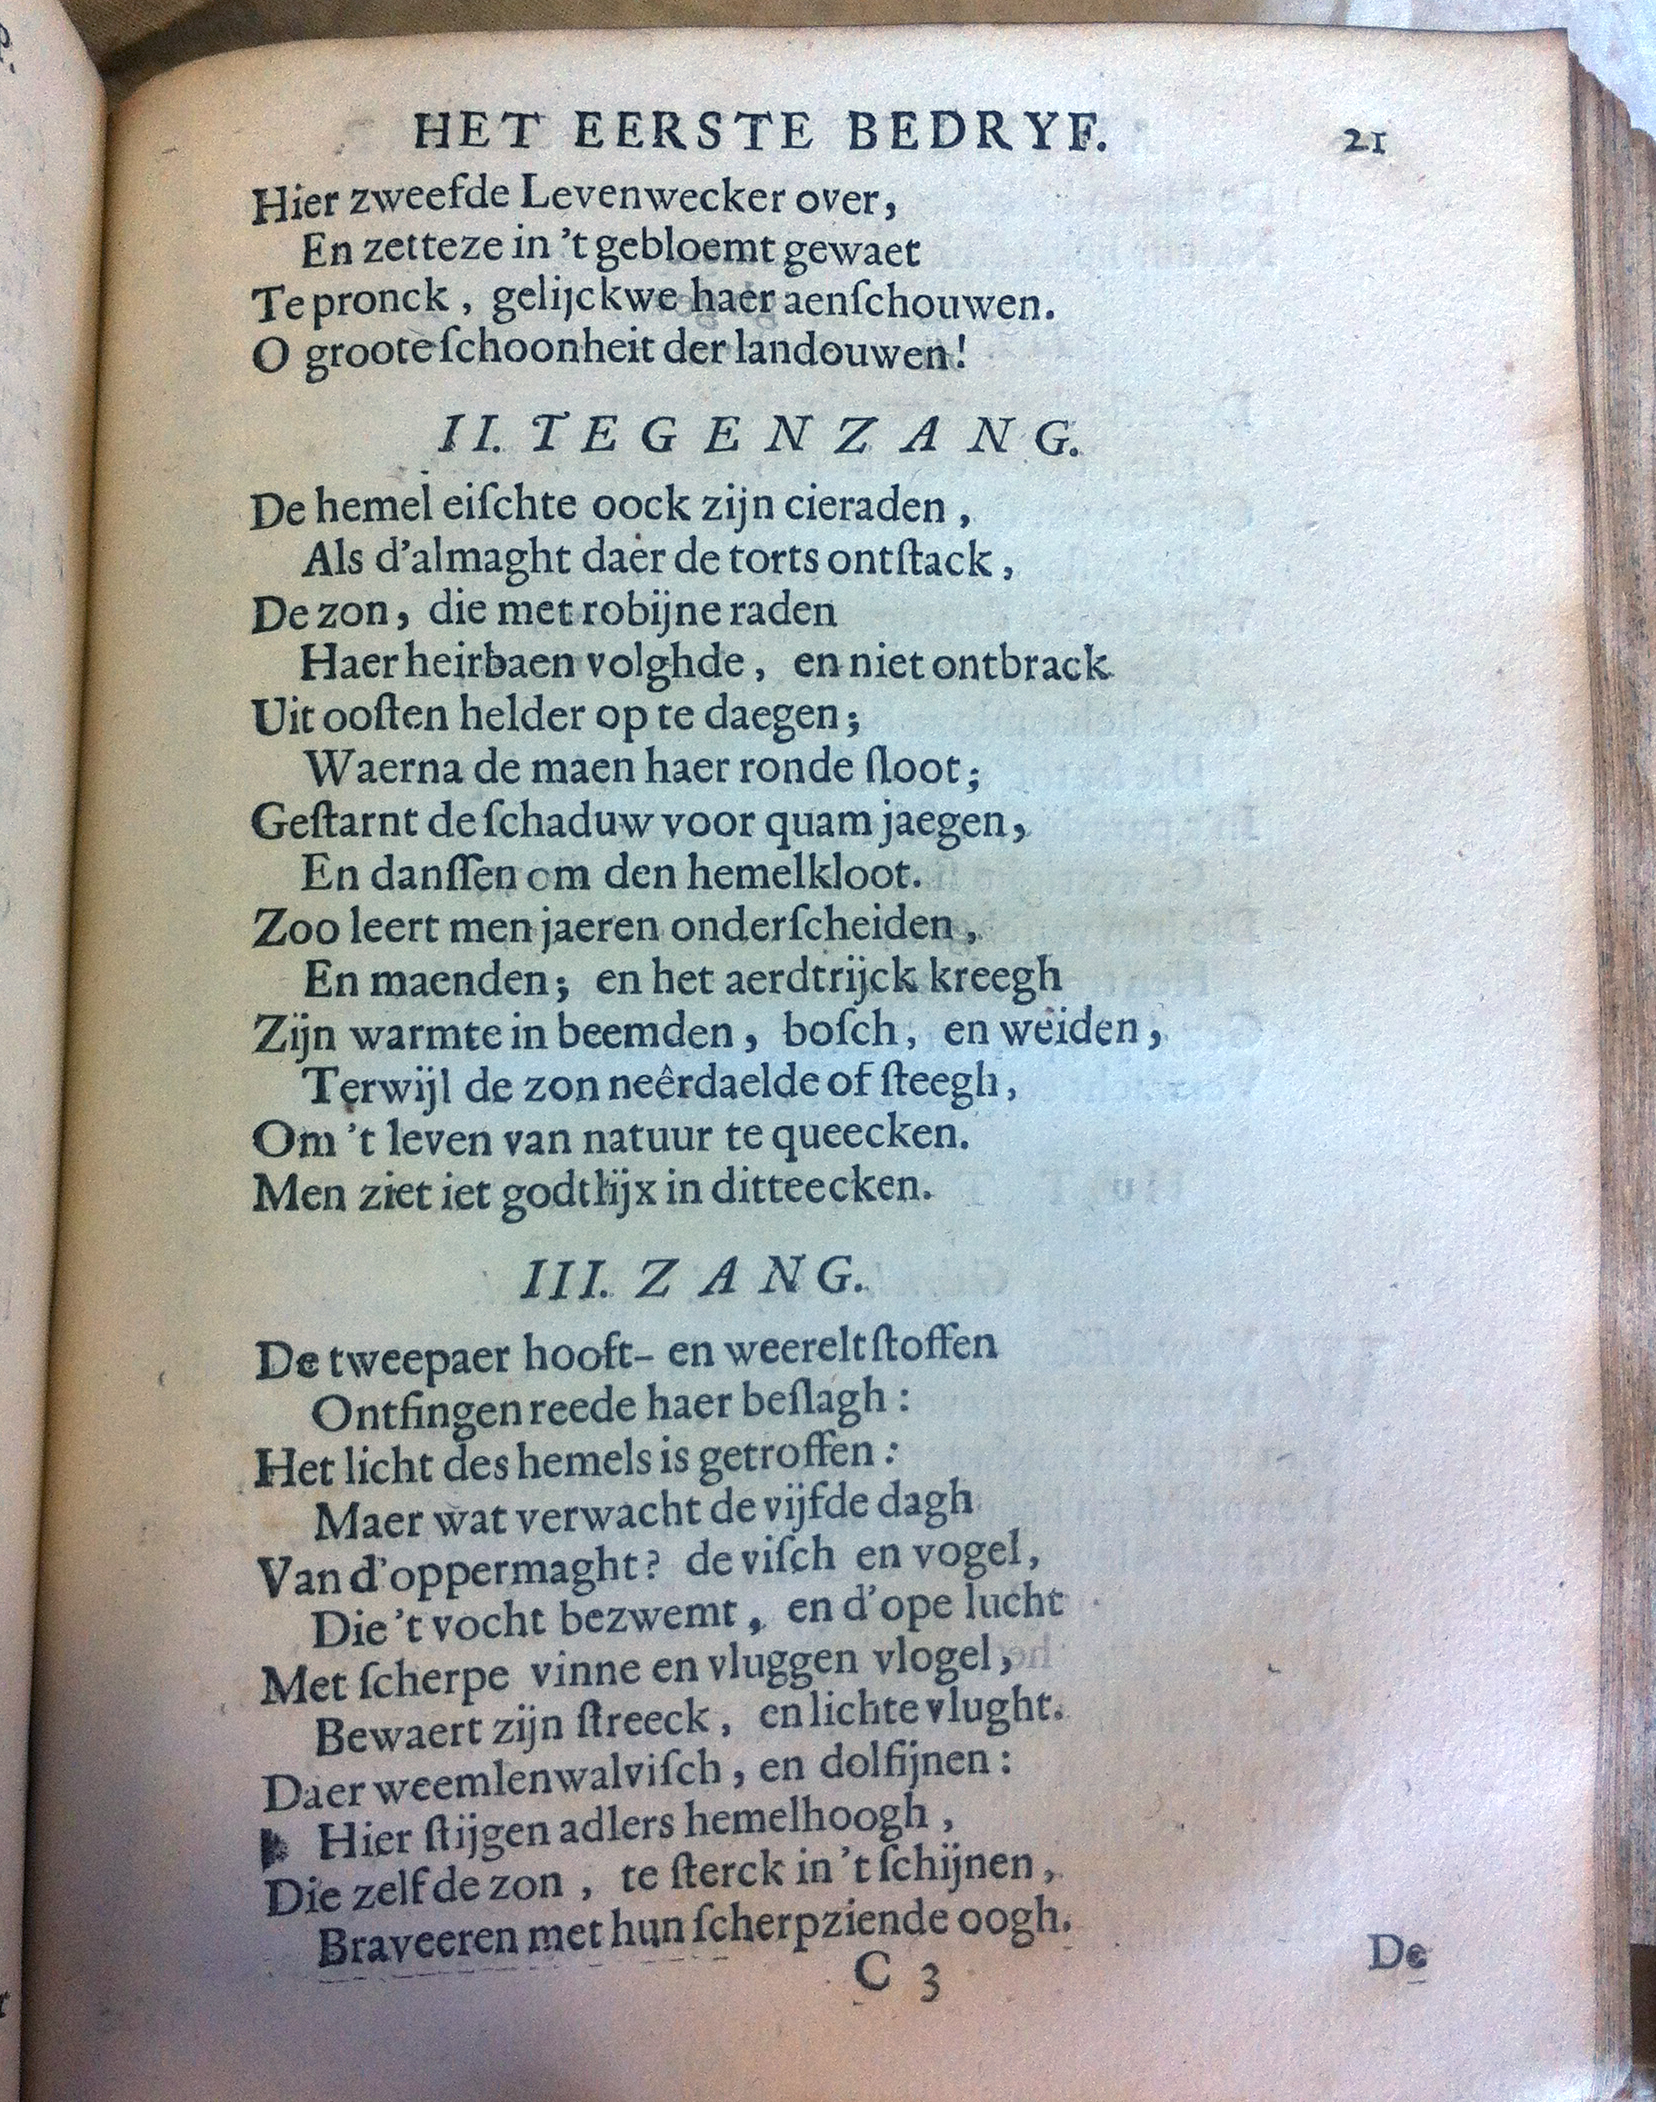 HET EERSTE BEDRYF. 21
Hier zweefde Levenwecker over,
En zetteze in 't gebloemt gewaet
Te pronck, gelijckwe haer aenſchouwen.
O groote ſchoonheit der landouwen!
II. TEGENZANG.
De hemel eiſchte oock zijn cieraden,
Als d'almaght daer de torts ontſtack,
De zon, die met robijne raden
Haer heirbaen volghde, en niet ontbrack
Uit ooſten helder op te daegen;
Waerna de maen haer ronde ſloot;
Geſtarnt de ſchaduw voor quam jaegen,
En danſſen om den hemelkloot.
Zoo leert men jaeren onderſcheiden,
En maenden; en het aerdtrijck kreegh
Zijn warmte in beemden, boſch, en weiden,
Terwijl de zon neêrdaelde of ſteegh,
Om 't leven van natuur te queecken.
Men ziet iet godtlijx in dit teecken.
III. ZANG.
De twee paer hooft- en weerelt ſtoffen
Ontfingen reede haer beſlagh:
Het licht des hemels is getroffen:
Maer wat verwacht de vijfde dagh
Van d'oppermaght? de viſch en vogel,
Die 't vocht bezwemt, en d'ope lucht
Met ſcherpe vinne en vluggen vlogel,
Bewaert zijn ſtreeck, en lichte vlught.
Daer weemlen walviſch, en dolfijnen:
Hier ſtijgen adlers hemelhoogh,
Die zelf de zon, te ſterck in 't ſchijnen,
Braveeren met hun ſcherpziende oogh.
C 3 De